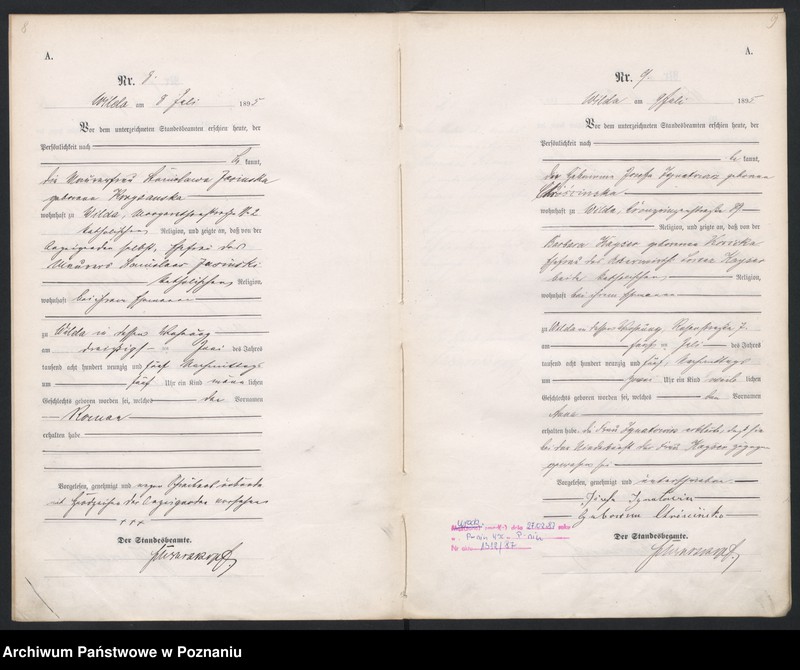 8
A.
Nr. 8.
Wilda am 8 Juli 1895
Vor dem unterzeichneten Standesbeamten erschien heute, der
Persönlichkeit nach
be kannt,
die Maurerfrau Stanislawa Jasinska
geborene
wohnhaft zu Wilda,
katholischer Religion, und zeigte an, daß von der
selbst, Ehefrau des
Maurers Stanislaus Jasinski
katholischer Religion,
wohnhaft bei ihrem Ehemanne
zu Wilda in dessen Wohnung
am dreißigsten Juni des Jahres
tausend acht hundert neunzig und fünf Nachmittags
um fünf Uhr ein Kind männ lichen
Geschlechts geboren worden sei, welches den Vornamen
Roman
erhalten habe
Vorgelesen, genehmigt und wegen
mit Handzeichen der versehen
+++
Der Standesbeamte.
9
A.
Nr. 9.
Wilda am 9 Juli 1895
Vor dem unterzeichneten Standesbeamten erschien heute, der
Persönlichkeit nach
be kannt,
die Hebamme Josefa Ignatowicz geborene
wohnhaft zu Wilda,
Religion, und zeigte an, daß von der
Barbara Kayser geborene
Ehefrau des Lorenz Kayser
beide katholischer Religion,
wohnhaft bei ihrem Ehemanne
zu Wilda in dessen Wohnung, Rosenstraße 7
am fünften Juli des Jahres
tausend acht hundert neunzig und fünf Nachmittags
um zwei Uhr ein Kind weib lichen
Geschlechts geboren worden sei, welches den Vornamen
Anna
erhalten habe. die Frau Ignatowicz erklärte, daß sie
bei der Niederkunft der Frau Kayser zugegen
gewesen sei
Vorgelesen, genehmigt und unterschrieben
Josefa Ignatowicz
geborene
Der Standesbeamte.
Archiwum Państwowe w Poznaniu